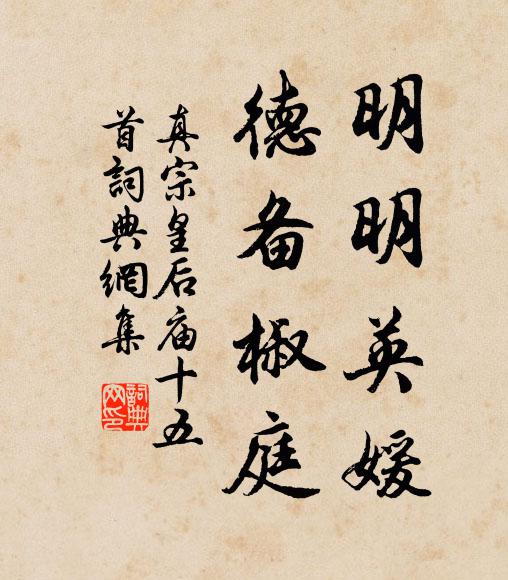 明明英媛
德备椒庭
真宗皇后庙十五
首詞典網集
詞典
网印